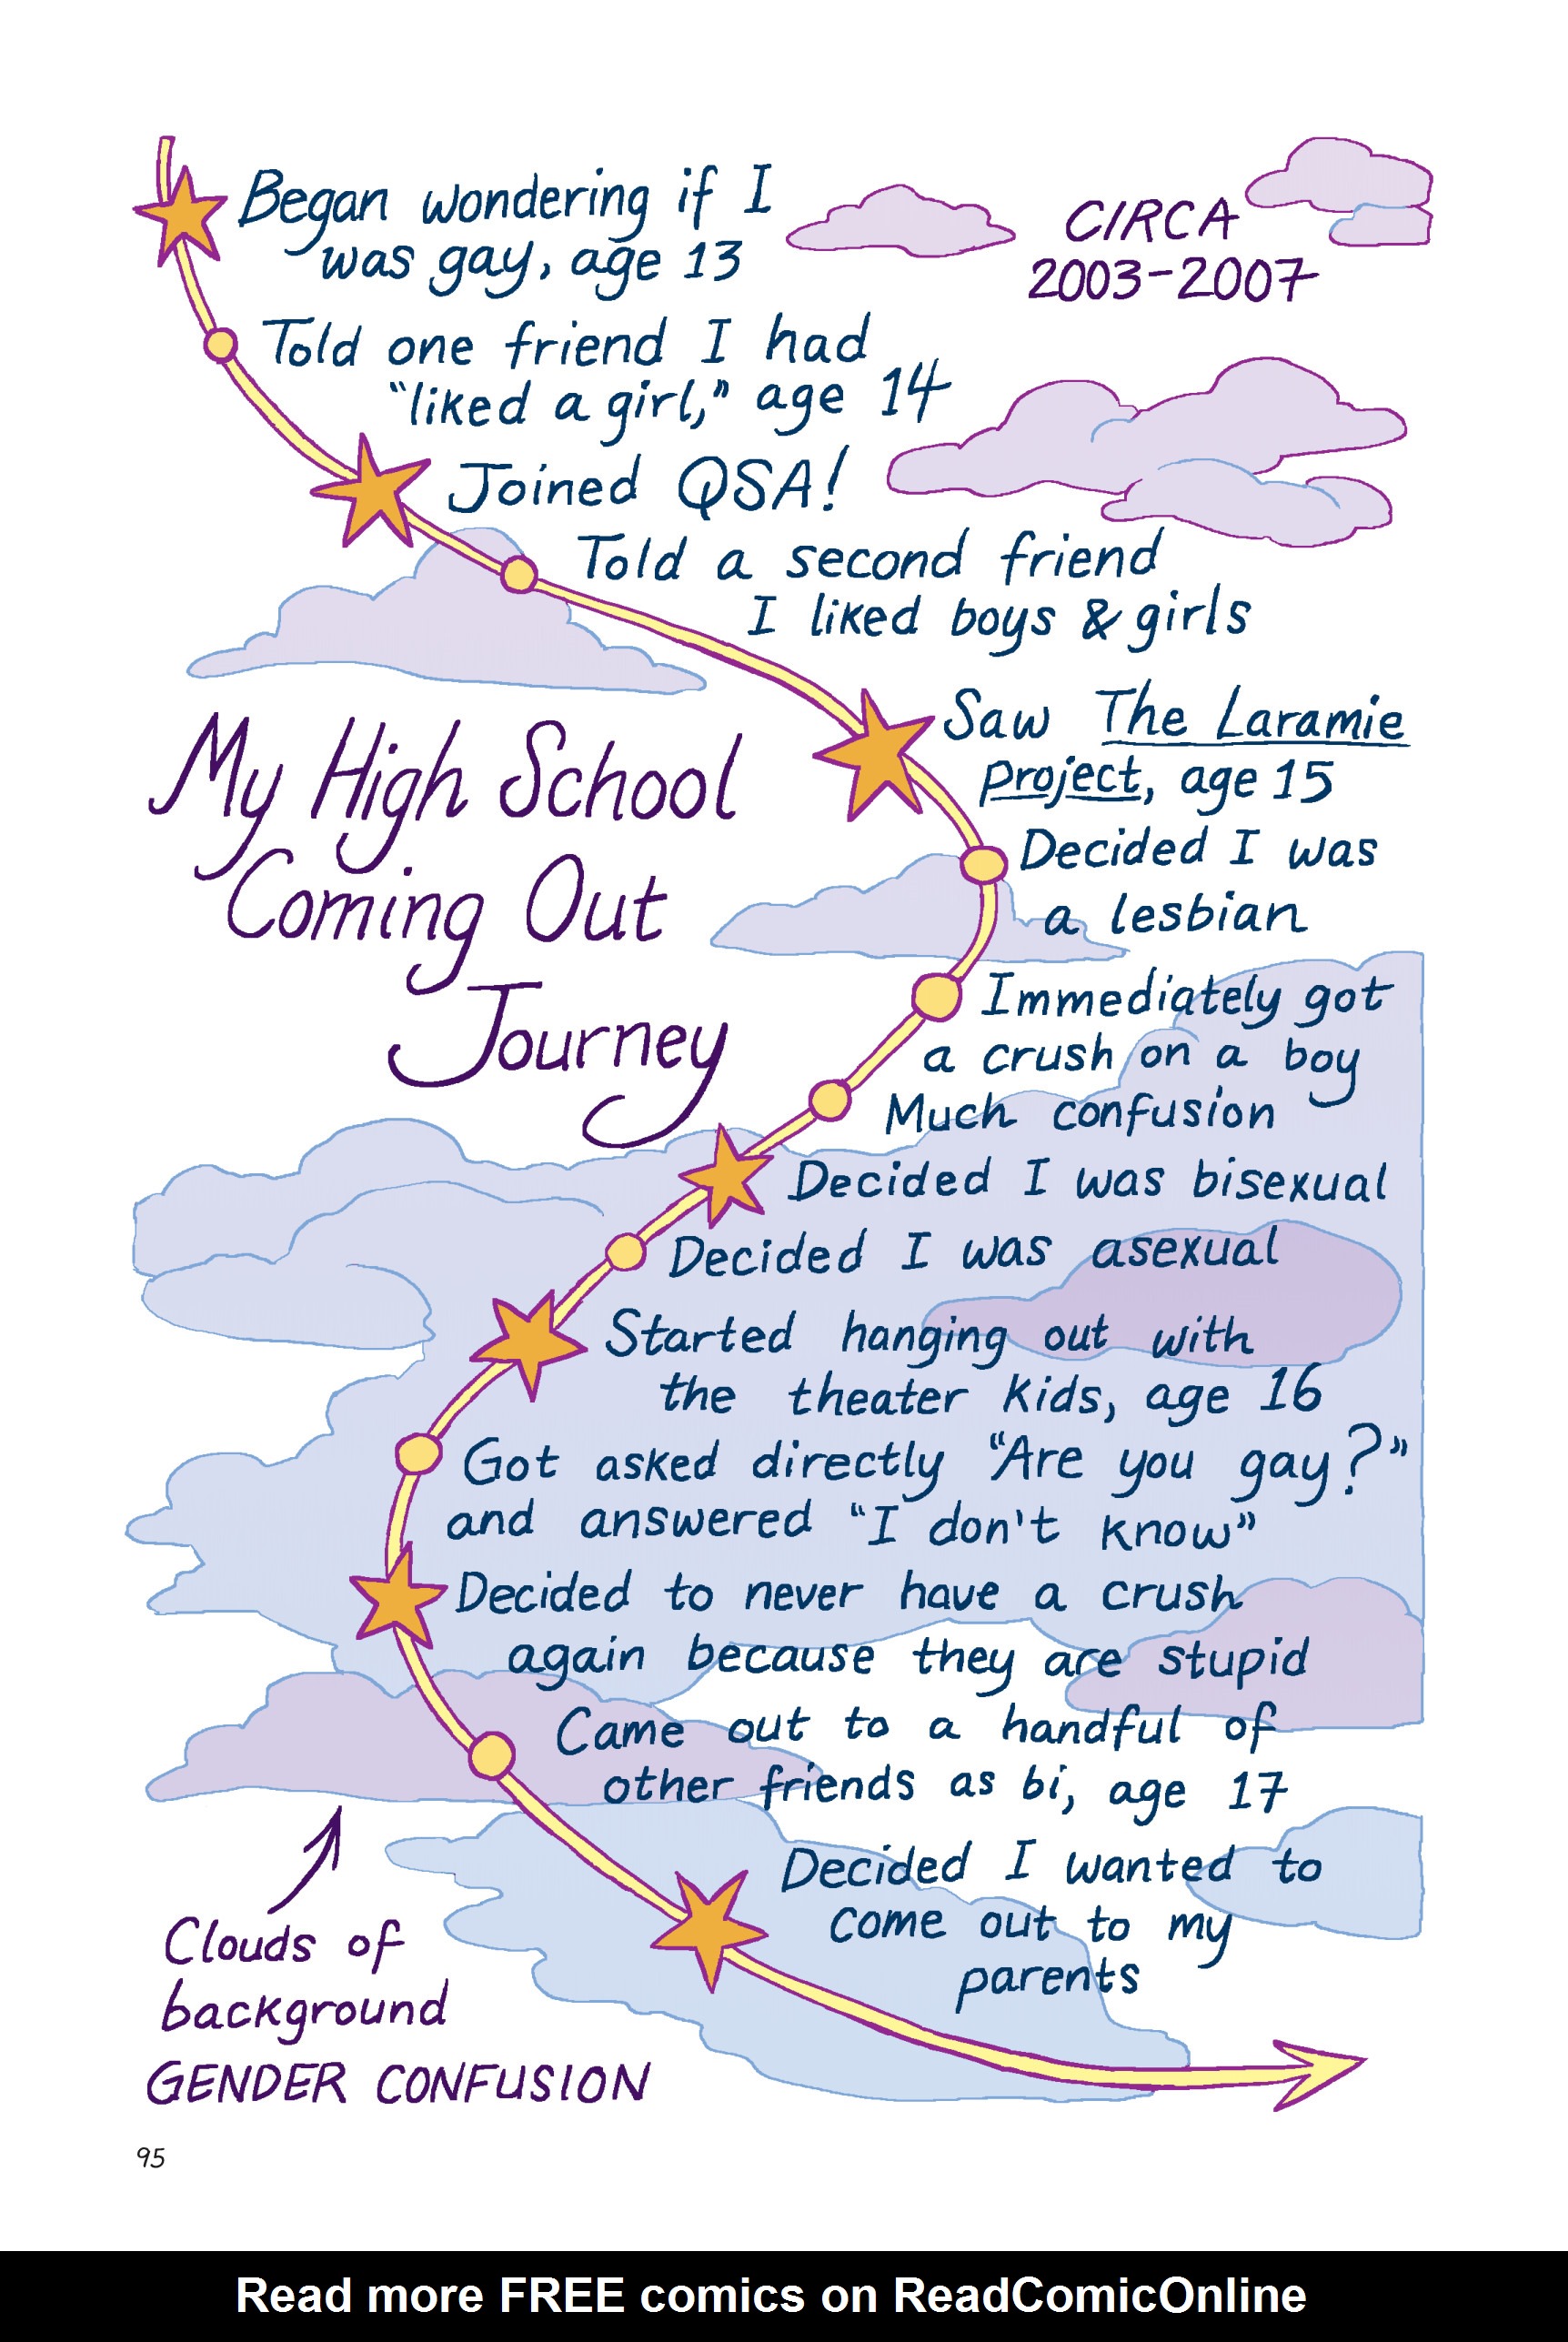 Began wondering if I
was gay, age 13
CIRCA
2003-2007
Told one friend I had
"liked a girl," age 14
Joined QSA!
Told a second friend
I liked boys & girls
My High School
Coming Out
Journey
Saw The Laramie
Project, age 15
Decided I was
a lesbian
Immediately got
a crush on a boy
Much confusion
Decided I was bisexual
Decided I was asexual
Started hanging out with
the theater kids, age 16
Got asked directly "Are you gay?"
and answered "I don't know"
Decided to never have a crush
again because they are stupid
Came out to a handful of
other friends as bi, age 17
Decided I wanted to
come out to my
parents
Clouds of
background
GENDER CONFUSION
95
Read more FREE comics on ReadComicOnline